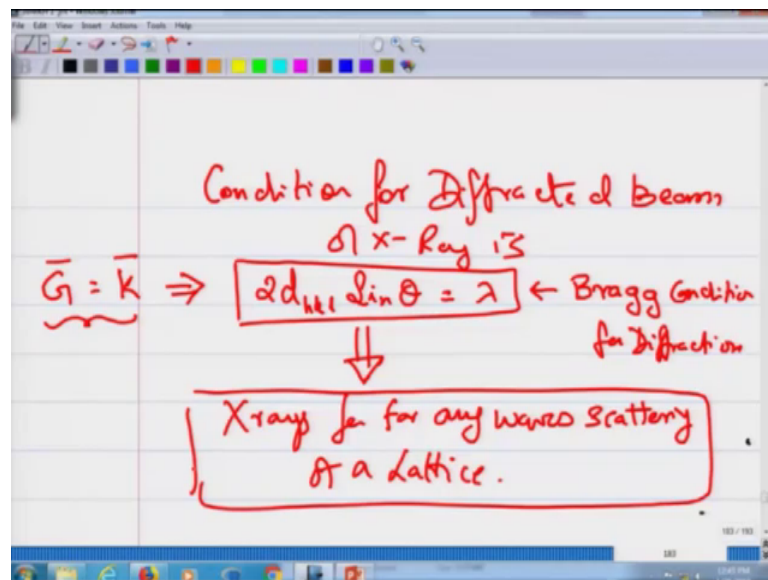 File Edit View Insert Actions Tools Help
Condition for Diffracted Beams
of X-Ray is
G̅ = K̅ ⇒ 2d_hkl Sin θ = λ ← Bragg Condition
for Diffraction
⇓
X rays for any waves scattery
of a Lattice.
183 / 193
183
12:45 PM